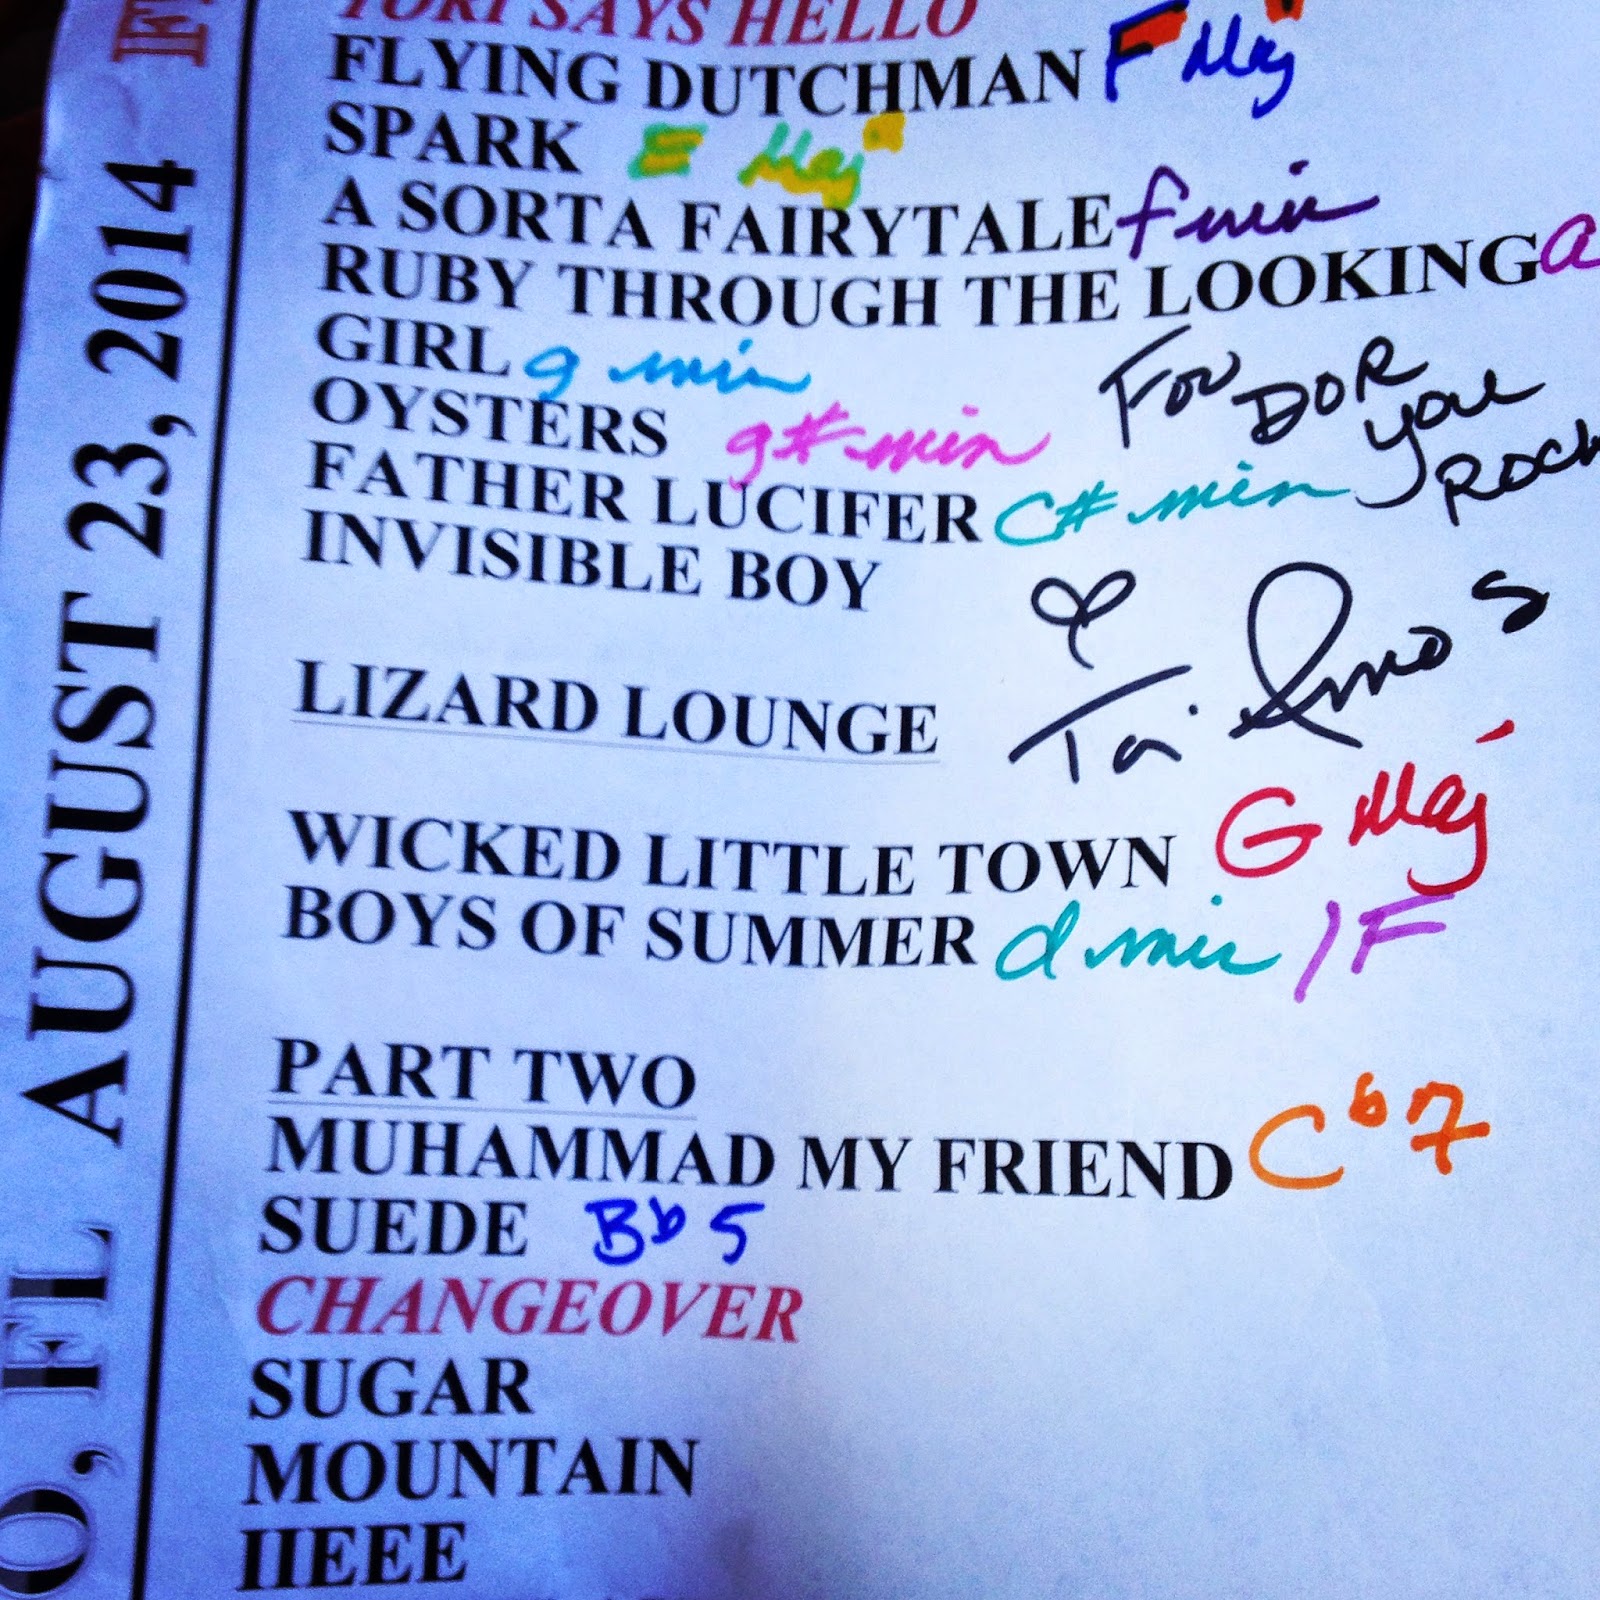 TORI SAYS HELLO
FLYING DUTCHMAN F Maj
SPARK E Maj
A SORTA FAIRYTALE f min
RUBY THROUGH THE LOOKING a
GIRL g min
OYSTERS g# min
FATHER LUCIFER C# min
INVISIBLE BOY
For DOR
you
ROCK
Tori Amos
LIZARD LOUNGE
WICKED LITTLE TOWN G Maj
BOYS OF SUMMER d min / F
PART TWO
MUHAMMAD MY FRIEND C b7
SUEDE Bb 5
CHANGEOVER
SUGAR
MOUNTAIN
IIEEE
O, FL AUGUST 23, 2014